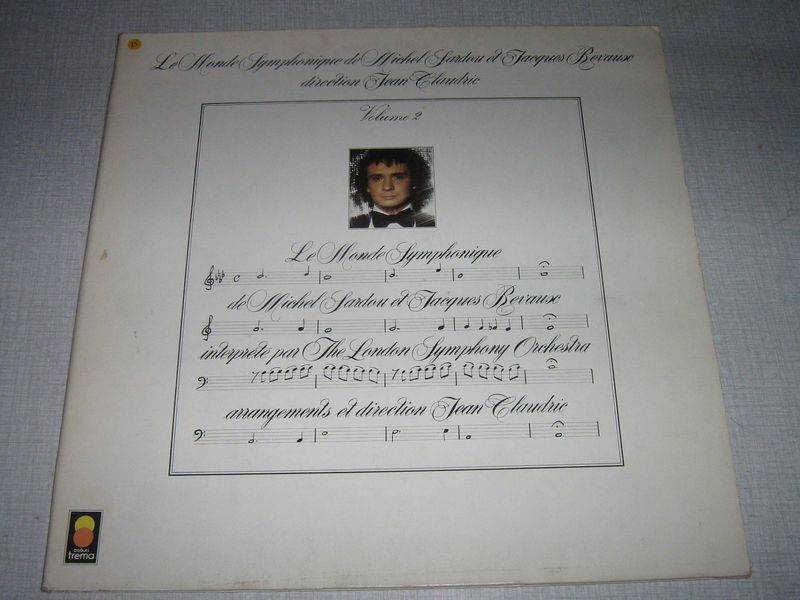 15
Le Monde Symphonique de Michel Sardou et Jacques Revaux
direction Jean Claudric
Volume 2
Le Monde Symphonique
de Michel Sardou et Jacques Revaux
interprété par The London Symphony Orchestra
arrangements et direction Jean Claudric
DISQUES
trema